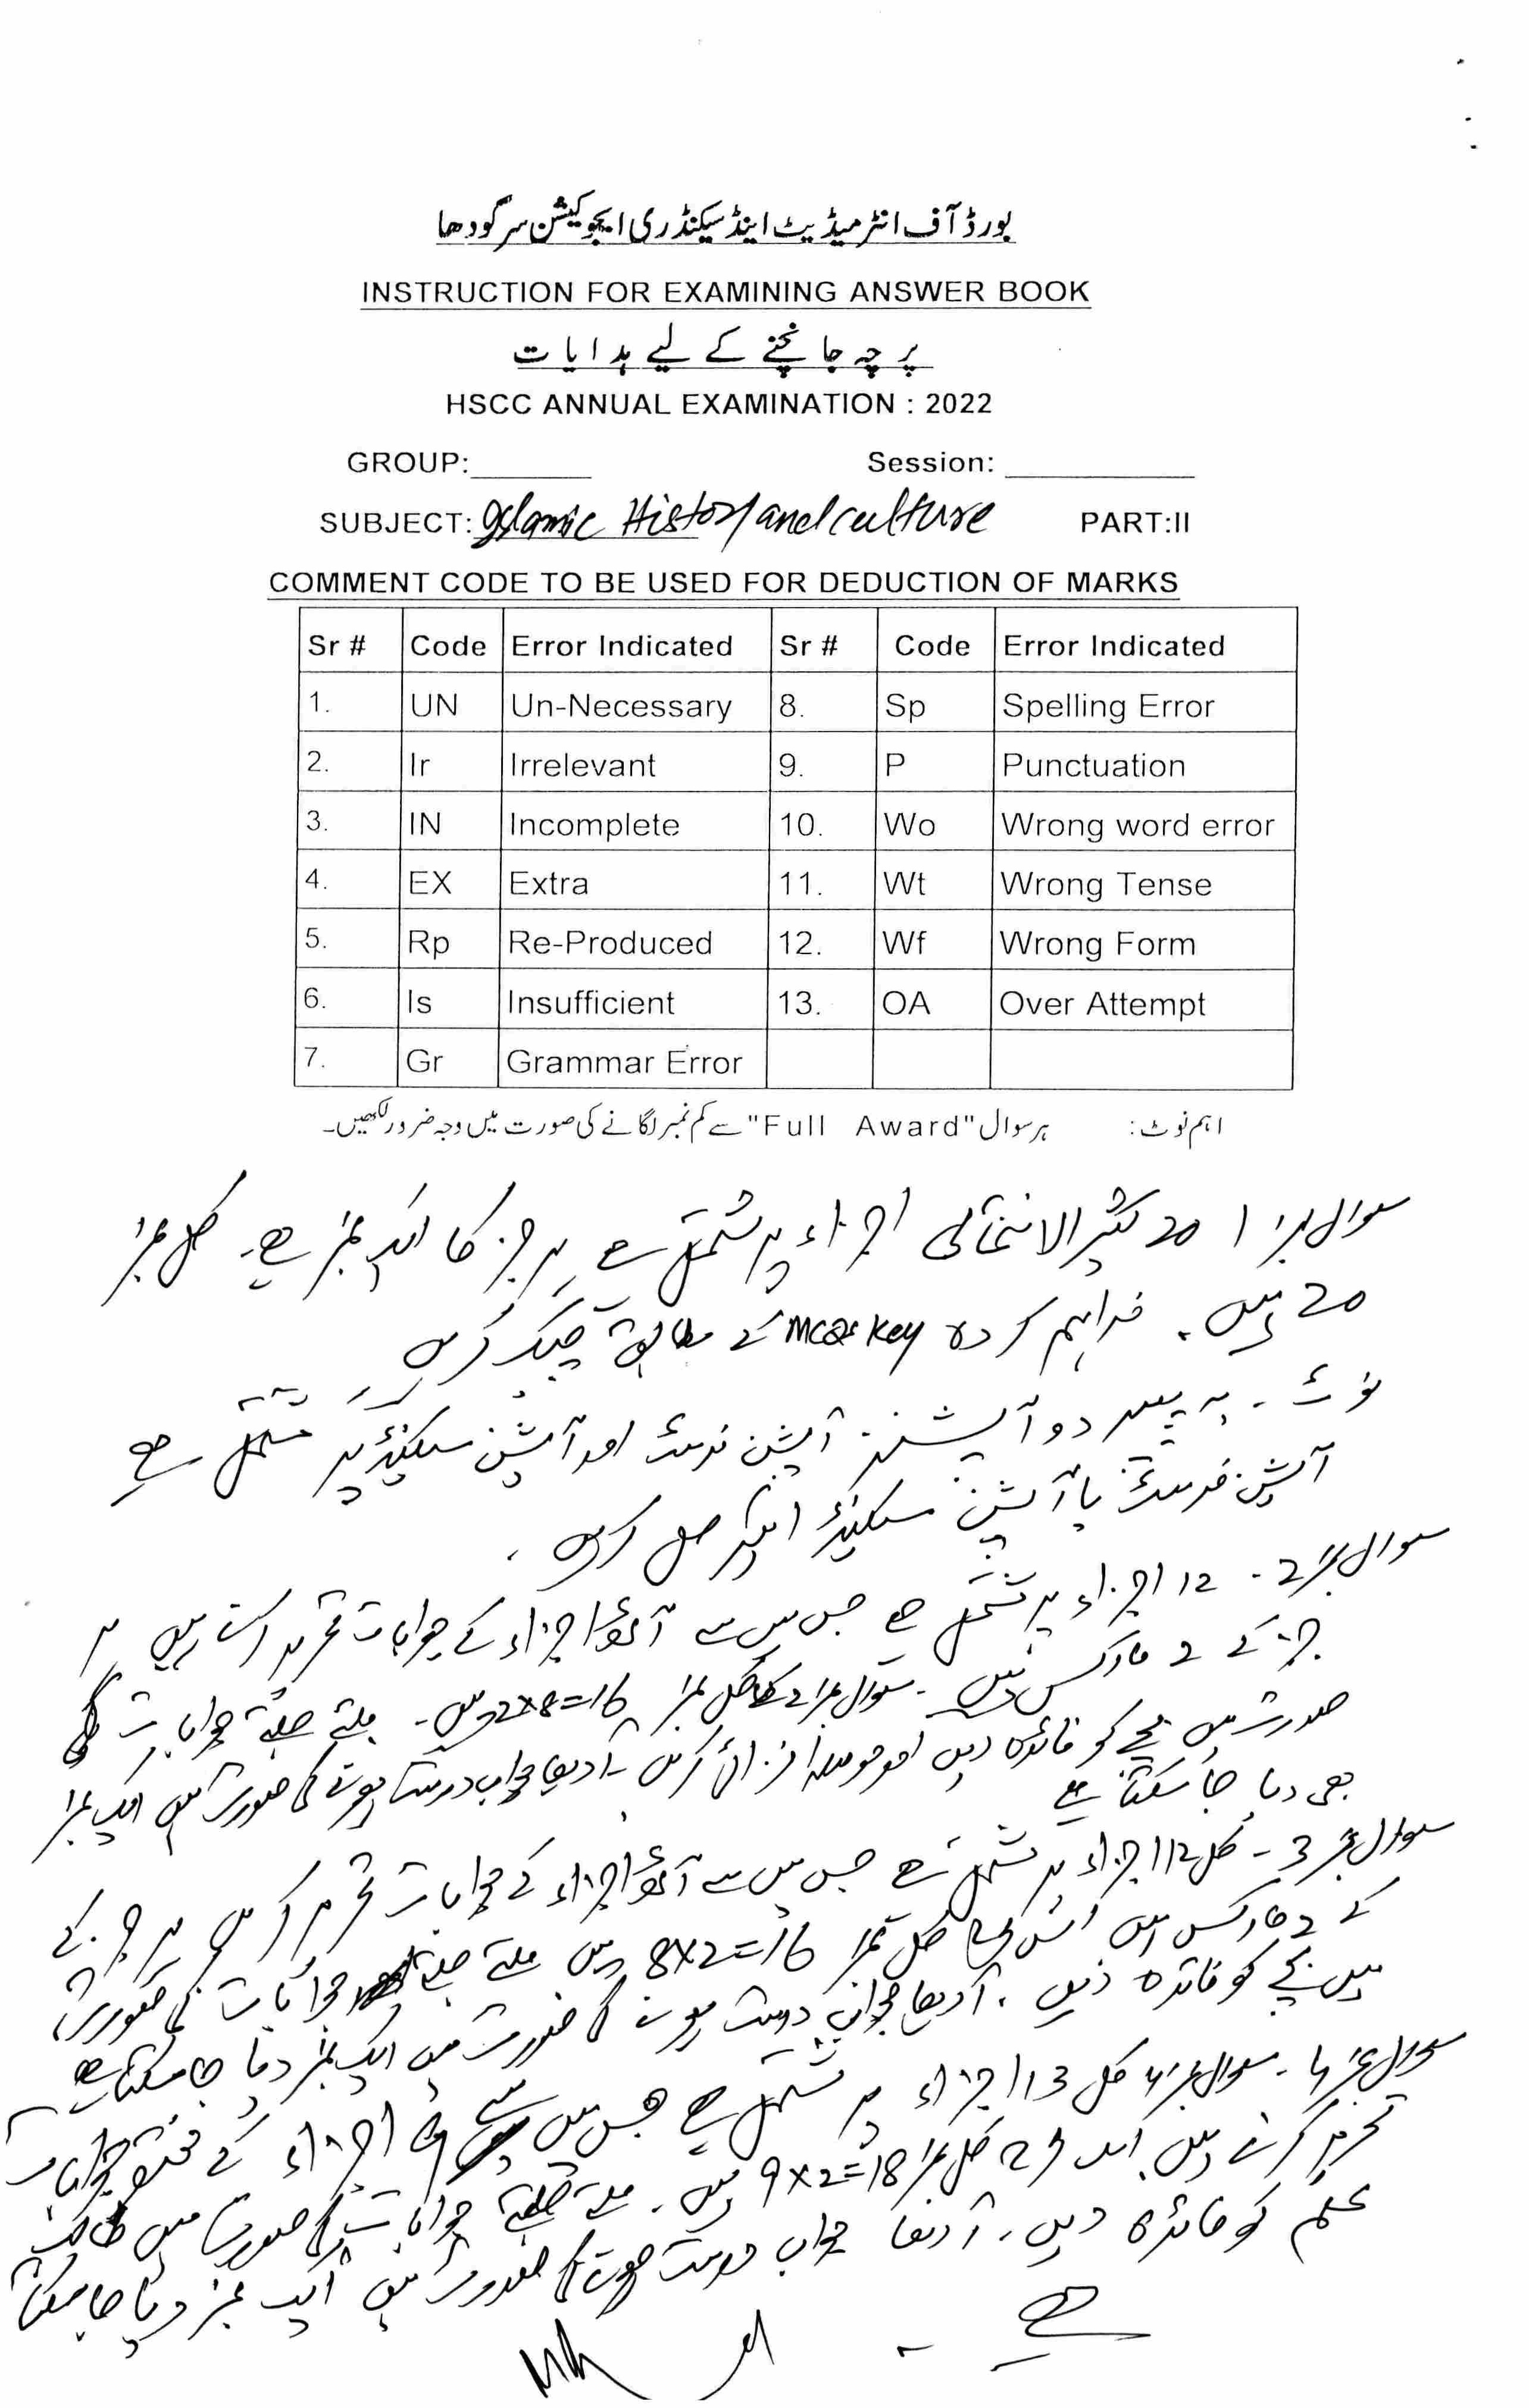 بورڈ آف انٹرمیڈیٹ اینڈ سیکنڈری ایجوکیشن سرگودھا
INSTRUCTION FOR EXAMINING ANSWER BOOK
پرچہ جانچنے کے لیے ہدایات
HSCC ANNUAL EXAMINATION : 2022
GROUP:_______ Session: ___________
SUBJECT: Islamic History and culture PART:II
COMMENT CODE TO BE USED FOR DEDUCTION OF MARKS
Sr # Code Error Indicated Sr # Code Error Indicated
1. UN Un-Necessary 8. Sp Spelling Error
2. Ir Irrelevant 9. P Punctuation
3. IN Incomplete 10. Wo Wrong word error
4. EX Extra 11. Wt Wrong Tense
5. Rp Re-Produced 12. Wf Wrong Form
6. Is Insufficient 13. OA Over Attempt
7. Gr Grammar Error
اہم نوٹ: ہر سوال "Full Award" سے کم نمبر لگانے کی صورت میں وجہ ضرور لکھیں۔
سوال نمبر 1 20 کثیر الانتخابی اجزاء پر مشتمل ہے ہر جز کا ایک نمبر ہے۔ کل نمبر
20 ہیں۔ فراہم کردہ MCQs Key کے مطابق چیک کریں
نوٹ۔ یہ پیپر دو آپشنز آپشن فرسٹ اور آپشن سیکنڈ پر مشتمل ہے
آپشن فرسٹ یا آپشن سیکنڈ حل کریں۔
سوال نمبر 2۔ 12 اجزاء پر مشتمل ہے جس میں سے آٹھ اجزاء کے جوابات تحریر کرنے ہیں ہر
جز کے 2 مارکس ہیں۔ سوال نمبر 2 کے کل نمبر 2×8=16 ہیں۔ ملتے جلتے جوابات کی
صورت میں بچے کو فائدہ دیں اور حوصلہ افزائی کریں۔ آدھا جواب درست ہونے کی صورت میں ایک نمبر
بھی دیا جا سکتا ہے
سوال نمبر 3۔ کل 12 اجزاء پر مشتمل ہے جس میں سے آٹھ اجزاء کے جوابات تحریر کریں ہر جز کے
کے 2 مارکس ہیں کل نمبر 8×2=16 ہیں ملتے جلتے جوابات کی صورت
میں بچے کو فائدہ دیں۔ آدھا جواب درست ہونے کی صورت میں ایک نمبر دیا جا سکتا ہے
سوال نمبر 4۔ سوال نمبر 4 کل 13 اجزاء پر مشتمل ہے جس میں سے اجزاء کے مختصر جوابات
تحریر کرنے ہیں کل نمبر 9×2=18 ہیں۔ ملتے جلتے جوابات کی صورت میں طالب
علم کو فائدہ دیں۔ آدھا جواب درست ہونے کی صورت میں ایک نمبر دیا جا سکتا
ہے۔